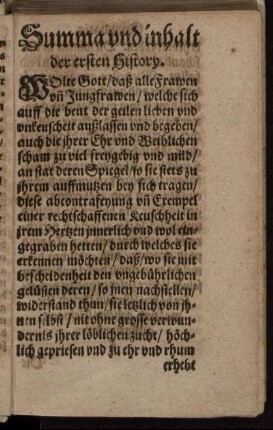 Summa vnd inhalt
der ersten History.
WOlte Gott/ daß alle Frawen
vñ Jungfrawen/ welche sich
auff die beut der geilen lieben vnd
vnkeuscheit außlassen vnd begeben/
auch die jhrer Ehr vnd Weiblichen
scham zu viel freygebig vnd mild/
an stat deren Spiegel/ so sie stets zu
jhrem auffmutzen bey sich tragen/
diese abcontrafeyung vñ Exempel
einer rechtschaffenen Keuschheit in
jrem Hertzen jnnerlich vnd wol ein-
gegraben hetten/ durch welches sie
erkennen möchten/ daß/ wo sie mit
bescheidenheit den vngebührlichen
gelüsten deren/ so jnen nachstellen/
widerstand thun/ sie letzlich von jh-
nen selbst/ nit ohne grosse verwun-
dernis jhrer löblichen zucht/ höch-
lich gepriesen vnd zu ehr vnd rhum
erhebt